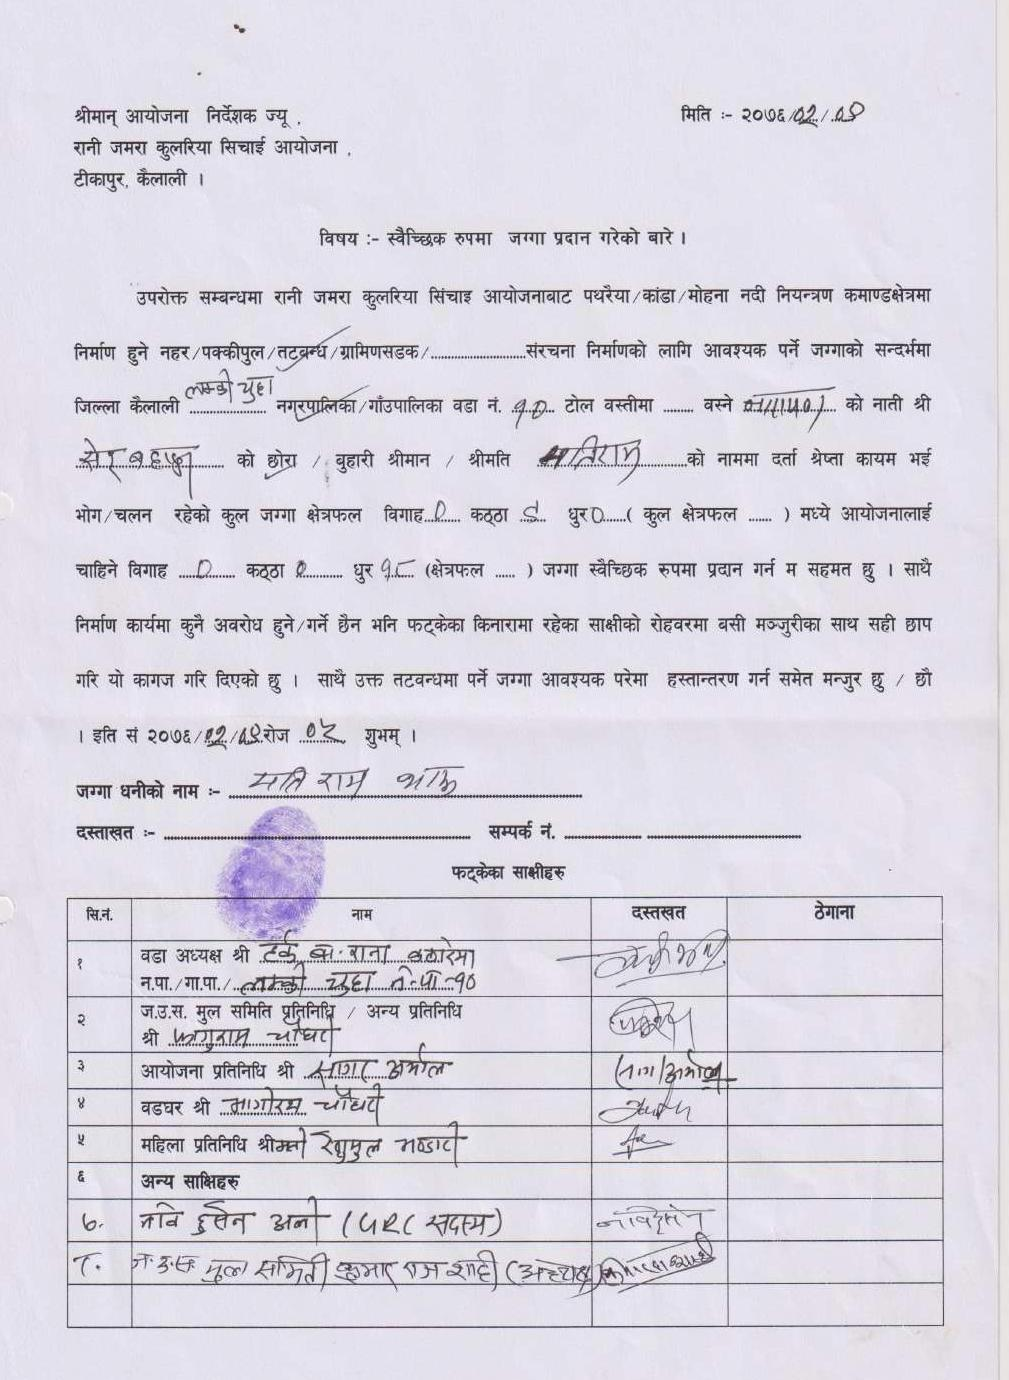 श्रीमान् आयोजना निर्देशक ज्यू ,
मिति :- २०७६/०२/०९
रानी जमरा कुलरिया सिचाई आयोजना ,
टीकापुर, कैलाली ।
विषय :- स्वैच्छिक रुपमा जग्गा प्रदान गरेको बारे ।
उपरोक्त सम्बन्धमा रानी जमरा कुलरिया सिंचाइ आयोजनाबाट पथरैया/कांडा/मोहना नदी नियन्त्रण कमाण्डक्षेत्रमा
निर्माण हुने नहर/पक्कीपुल/तटबन्ध/ग्रामिणसडक/........................संरचना निर्माणको लागि आवश्यक पर्ने जग्गाको सन्दर्भमा
जिल्ला कैलाली लम्की चुहा नगरपालिका/गाँउपालिका वडा नं. १० टोल वस्तीमा ........ वस्ने को नाती श्री
सेर बहादुर को छोरा / बुहारी श्रीमान / श्रीमति मतिराम को नाममा दर्ता श्रेप्ता कायम भई
भोग/चलन रहेको कुल जग्गा क्षेत्रफल विगाह ० कठ्ठा धुर ० ( कुल क्षेत्रफल ...... ) मध्ये आयोजनालाई
चाहिने विगाह ० कठ्ठा ० धुर १८ (क्षेत्रफल ..... ) जग्गा स्वैच्छिक रुपमा प्रदान गर्न म सहमत छु । साथै
निर्माण कार्यमा कुनै अवरोध हुने/गर्ने छैन भनि फट्केका किनारामा रहेका साक्षीको रोहवरमा बसी मञ्जुरीका साथ सही छाप
गरि यो कागज गरि दिएको छु । साथै उक्त तटवन्धमा पर्ने जग्गा आवश्यक परेमा हस्तान्तरण गर्न समेत मन्जुर छु / छौ
। इति सं २०७६/०२/०९ रोज ०५ शुभम् ।
जग्गा धनीको नाम :- मति राम
दस्ताखत :- ........................ सम्पर्क नं. ............ ........................
फट्केका साक्षीहरु
सि.नं. नाम दस्तखत ठेगाना
१ वडा अध्यक्ष श्री टर्क ब. राना
न.पा./गा.पा./ लम्की चुहा न.पा-१०
२ ज.उ.स. मुल समिति प्रतिनिधि / अन्य प्रतिनिधि
श्री फागुराम चौधरी
३ आयोजना प्रतिनिधि श्री सागर अर्माल
४ वडघर श्री चौधरी
५ महिला प्रतिनिधि श्रीमती
६ अन्य साक्षिहरु
७. नवि हुसेन अली (GRC सदस्य)
८. ज.उ.स. मुल समिती कुमार राज शाही (अध्यक्ष)